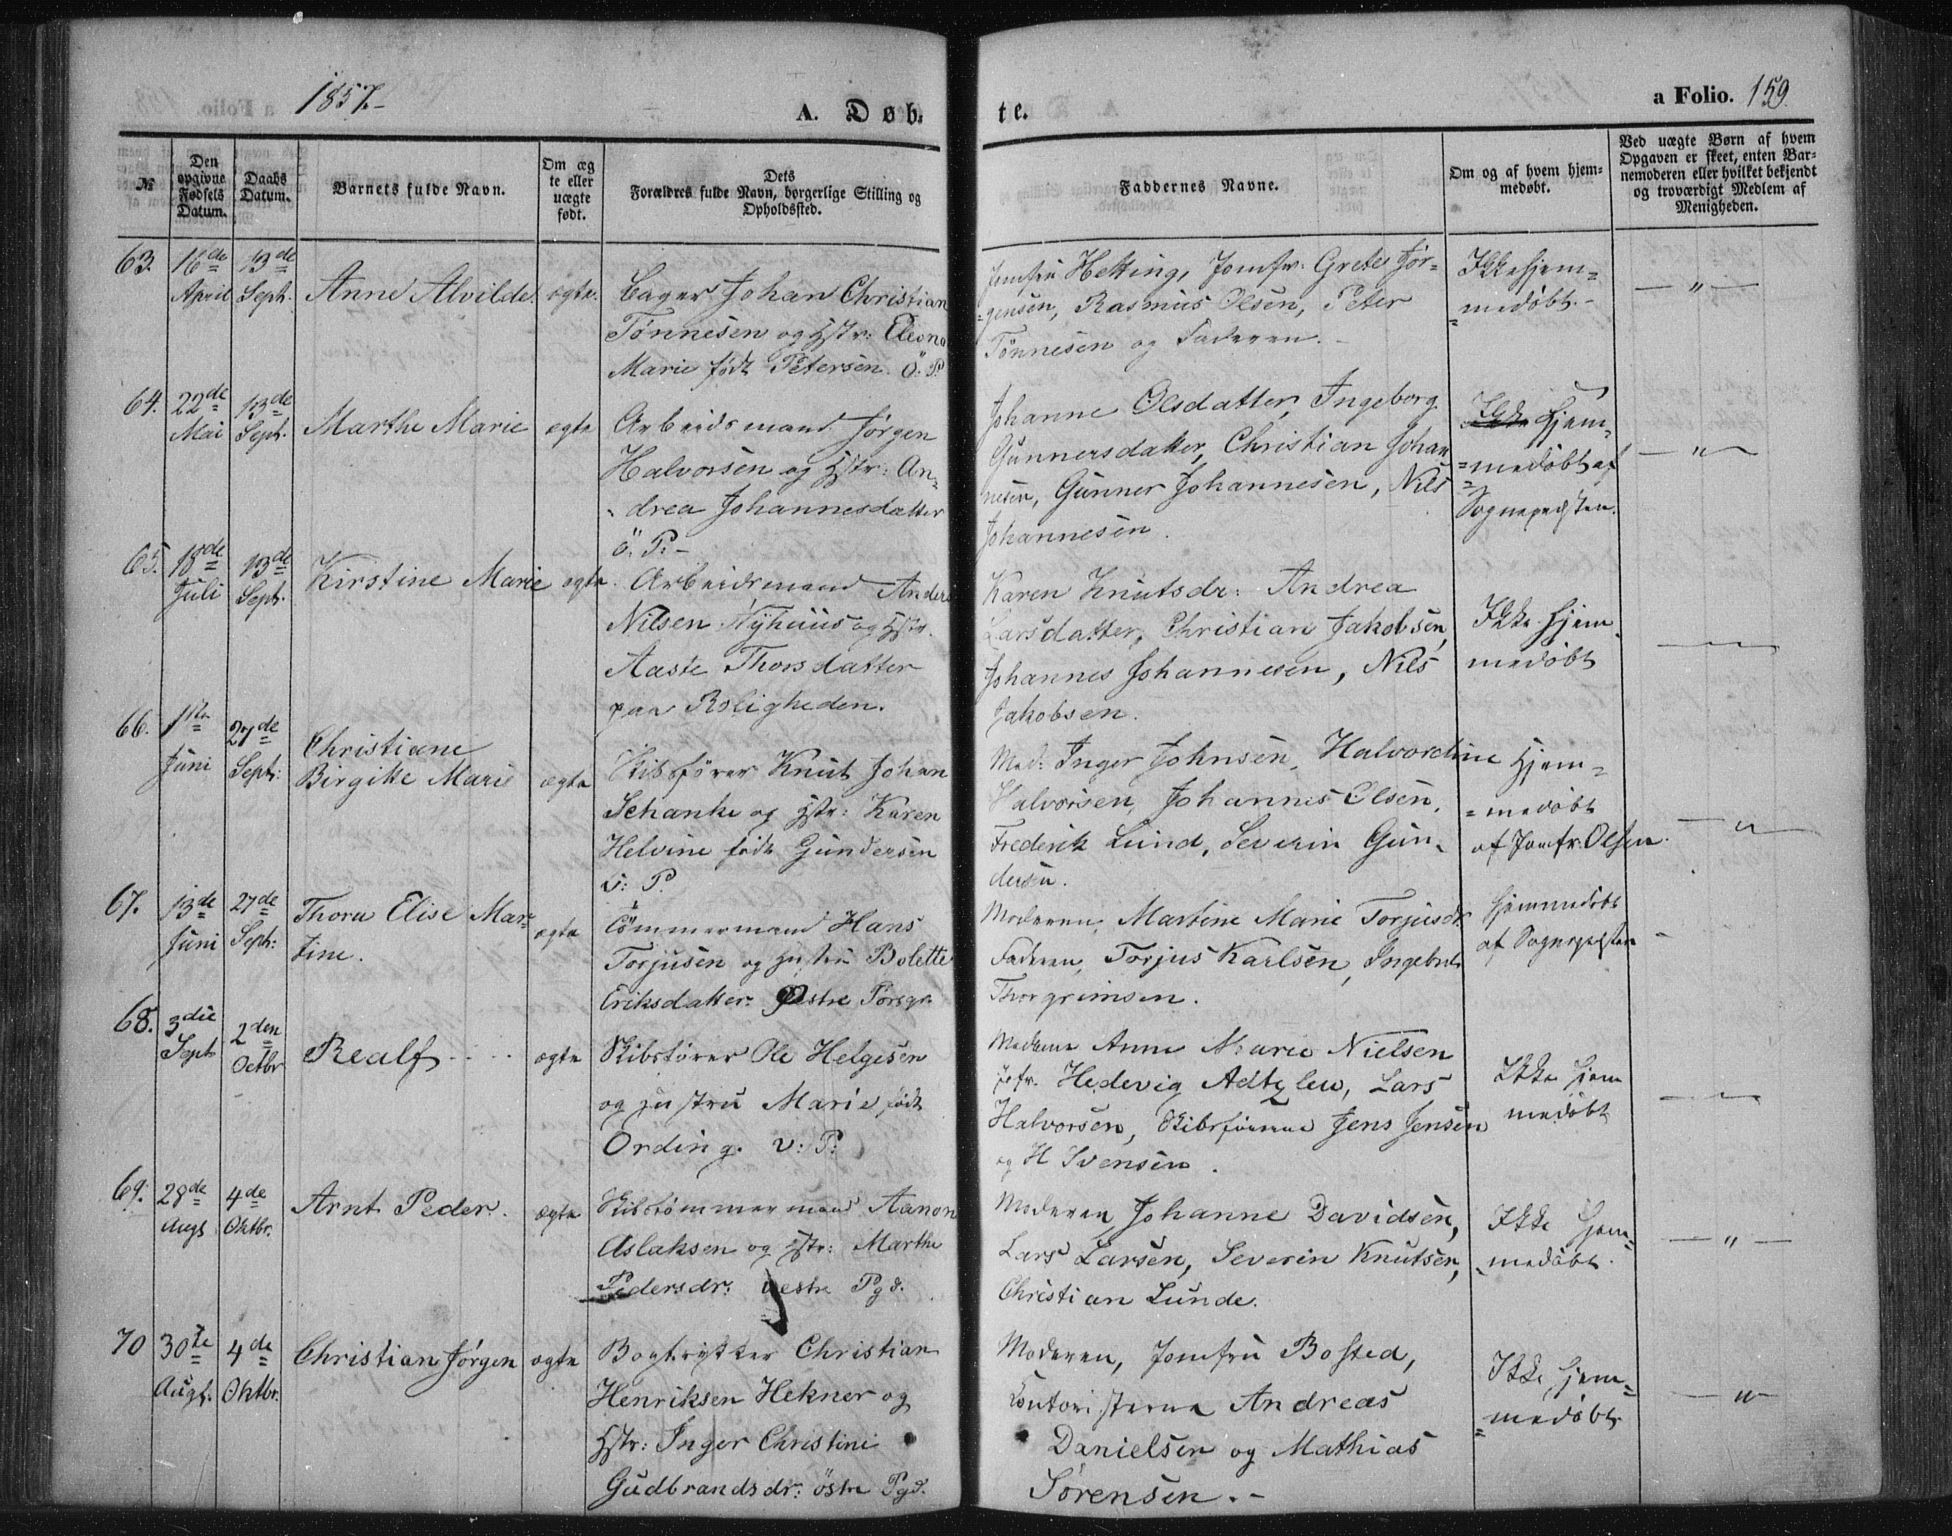 1857.-
A. Døb-
te.
a Folio. 159
№
Den opgivne Fødsels Datum.
Daabs Datum.
Barnets fulde Navn.
Om æg te eller uægte født.
Dets Forældres fulde Navn, borgerlige Stilling og Opholdssted.
Faddernes Navne.
Om og af hvem hjem- medøbt.
Ved uægte Børn af hvem Opgaven er skeet, enten Bar- nemoderen eller hvilket bekjendt og troværdigt Medlem af Menigheden.
63.
16de April
13de Sept.
Anne Alvilde.
ægte.
Bager Johan Christian
Tønnesen og Hstr: Eleono
Marie født Petersen. Ö: P.
Jomfru Hetting, Jomfr. Grete Jør-
-gensen, Rasmus Olsen, Peter
Tönnesen og Faderen.-
Ikke hjem=
=medøbt.-
— " —
64.
22de Mai
13de Sept.
Marthe Marie
ægte
Arbeidsmand Jørgen
Halvorsen og Hstr: An-
-drea Johannesdatter
ö: P:-
Johanne Olsdatter, Ingeborg
Gunnersdatter, Christian Johan
nesen, Gunner Johannesen, Nils
Johannesen.
Ikke hjem=
=medøbt af
Sognepresten.
— " —
65.
18de Juli
13de Sept.
Kirstine Marie
ægte.
Arbeidsmand Anders
Nilsen Nyhuus og Hstr.
Aaste Thorsdatter
paa Roligheden.
Karen Knutsdr: Andrea
Larsdatter, Christian Jakobsen,
Johannes Johannesen, Nils
Jakobsen.
Ikke hjem
medøbt
— " —
66.
1ste Juni
27de Sept:
Christiane
Birgitte Marie
ægte
Skibsfører Knut Johan
Schanke og Hstr: Karen
Helvine født Gundersen
v: P.
Mad: Inger Johnsen, Halvordine
Halvorsen, Johannes Olsen,
Frederik Lund, Severin Gun-
dersen.
Hjem=
=medøbt
af Jomfr. Olsen.
— " —
67.
13de Juni
27de Sept:
Thora Elise Mar-
tine.
ægte
Tömmermand Hans
Torjusen og Hustru Bolette
Eriksdatter. Østre Porsgr.
Moderen, Martine Marie Torjusdr.
Faderen, Torjus Karlsen, Ingebret
Thorgrimsen.
Hjemmedøbt
af Sognepresten
68.
3die Sept
2den Octbr
Realf
ægte
Skibsfører Ole Helgesen
og Hustru Marie født
Ording. v: P:
Madame Anne Marie Nielsen
Jofr. Hedevig Adtzlew, Lars
Halvorsen, Skibsførerne Jens Jensen
og H Svensen.
Ikke hjem
medøbt
— " —
69.
28de Augs
4de Oktbr.
Arnt Peder.
ægte
Skibstømmermand Aanon
Aslaksen og Hstr: Marthe
Pedersdr: vestre Pgd.
Moderen, Johanne Davidsen,
Lars Larsen, Severin Knutsen,
Christian Lunde.
Ikke hjem=
=medøbt.
— " —
70
30te Augst.
4de Oktbr.
Christian Jørgen
ægte
Bogtrykker Christian
Henriksen Hekner og
Hstr: Inger Christine
Gudbrandsdr: östre Pgd.
Moderen, Jomfru Bosted,
Kontoristerne Andreas
Danielsen og Mathias
Sörensen.-
Ikke hjem=
=medøbt
— " —